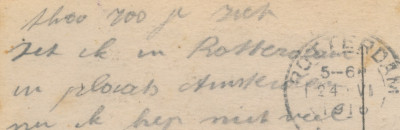 thoo zoo je ziet
Zit ik in Rotterdam
in plaats Amster
nu ik heb niet veel
ROTTERDAM
5-6
24 VI
1918